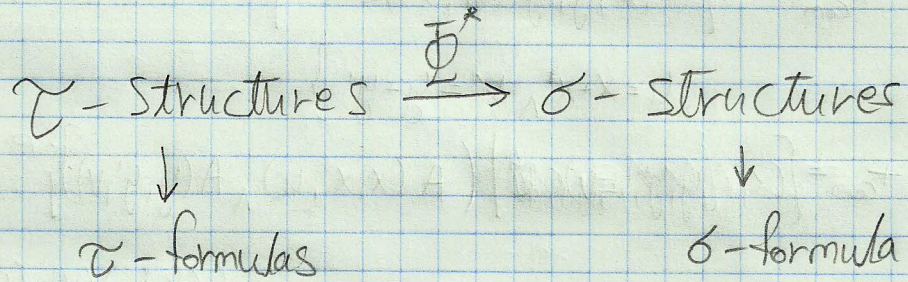 Φ*
τ - structures → σ - structures
↓ ↓
τ - formulas σ - formula